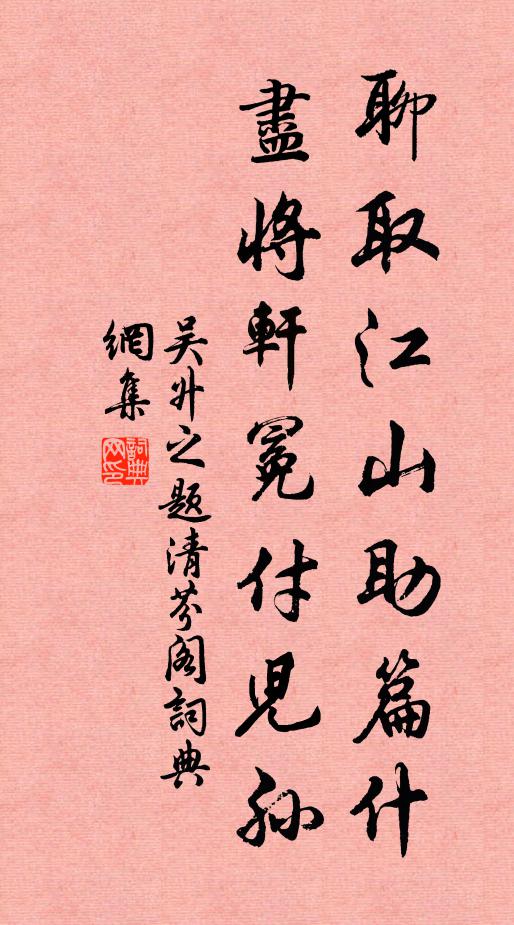 聊取江山助篇什
盡將軒冕付兒孫
吴升之题清芬阁詞典
網集
詞典
网印